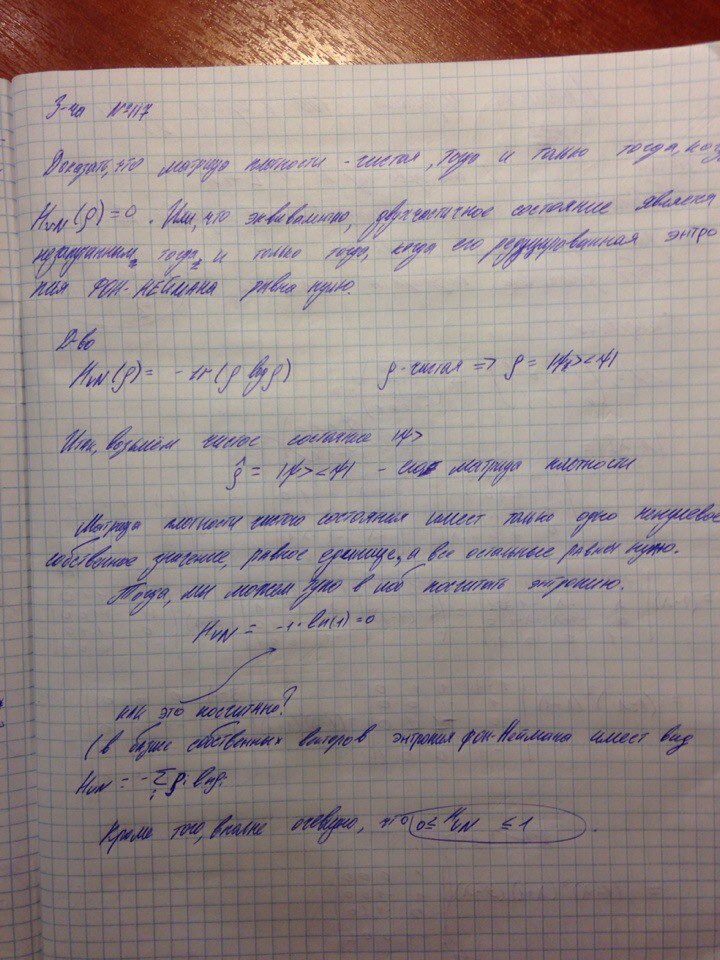 З-ча №117
Доказать, что матрица плотности - чистая, тогда и только тогда, ког
H_vN(ρ) = 0. Или, что эквивалентно, двухчастичное состояние является
незапутанным тогда и только тогда, когда его редуцированная энтро
пия ФОН-НЕЙМАНА равна нулю.
Д-во
H_vN(ρ) = - tr(ρ log ρ) ρ-чистая => ρ = |ψ><ψ|
Итак, возьмём чистое состояние |ψ>
ρ̂ = |ψ><ψ| - его матрица плотности
Матрица плотности чистого состояния имеет только одно ненулевое
собственное значение, равное единице, а все остальные равны нулю.
Тогда, мы можем тупо в лоб посчитать энтропию.
H_vN = -1·ln(1) = 0
как это посчитано?
(в базисе собственных векторов энтропия фон-Неймана имеет вид
H_vN = -∑_i ρ_i ln ρ_i
Кроме того, вполне очевидно, что 0 ≤ H_vN ≤ 1.